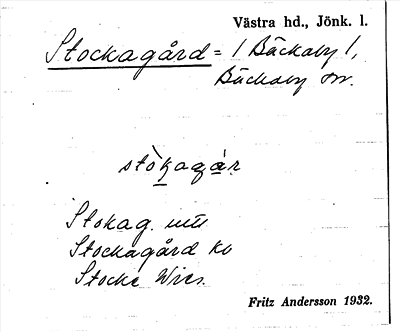 Västra hd., Jönk. l.
Stockagård = 1 Bäckaby 1,
Bäckaby sn.
stòkagár
Stokag. mtl
Stockagård kb
Stocke Wies.
Fritz Andersson 1932.